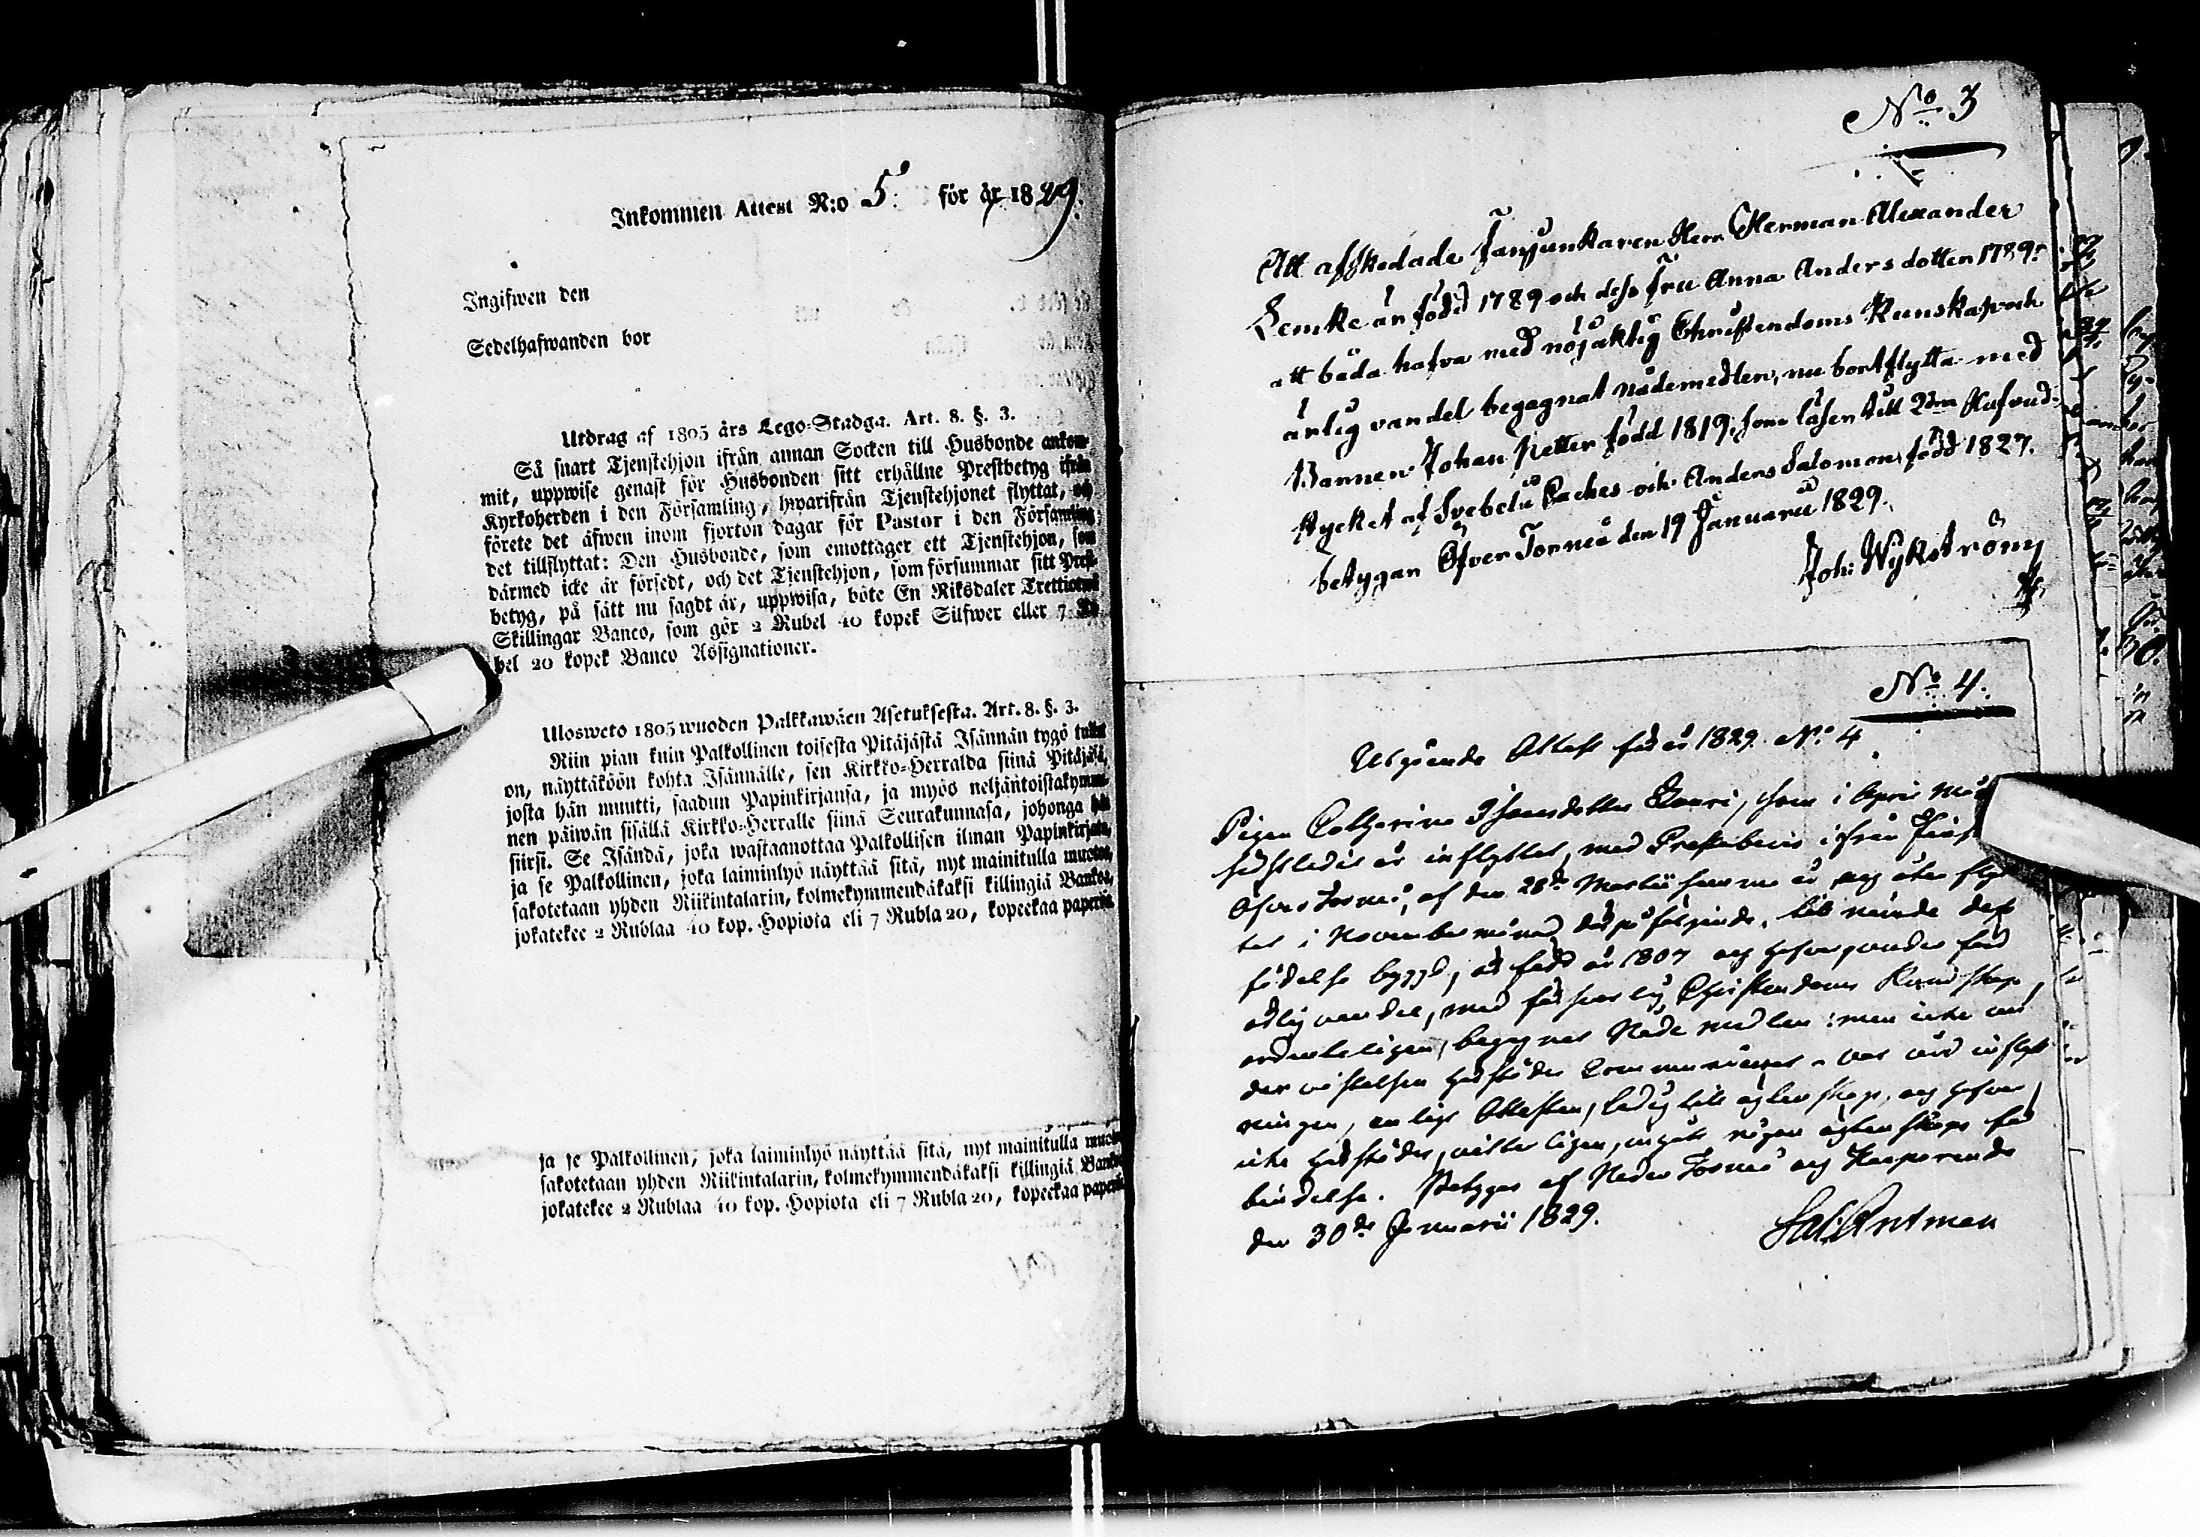 Inkommen Attest N:o 5. för år 1829.
Ingifwen den
Sedelhafwanden bor
Utdrag af 1805 års Lego-Stadga. Art. 8. §. 3.
Så snart Tjenstehjon ifrån annan Socken till Husbonde ankom-
mit, uppwise genast för Husbonden sitt erhållne Prestbetyg ifrån
Kyrkoherden i den Församling, hwarifrån Tjenstehjonet flyttat, och
förete det äfwen inom fjorton dagar för Pastor i den Församling,
det tillflyttat: Den Husbonde, som emottager ett Tjenstehjon, som
därmed icke är försedt, och det Tjenstehjon, som försummar sitt Prest-
betyg, på sätt nu sagdt är, uppwisa, böte En Riksdaler Trettiotwå
Skillingar Banco, som gör 2 Rubel 40 kopek Silfwer eller 7 Ru-
bel 20 kopek Banco Assignationer.
Ulosweto 1805 wuoden Palkkawäen Asetuksesta. Art. 8. §. 3.
Niin pian kuin Palkollinen toisesta Pitäjästä Isännän tygö tullut
on, näyttäköön kohta Isännälle, sen Kirkko-Herralda siinä Pitäjäsä,
josta hän muutti, saadun Papinkirjansa, ja myös neljäntoistakymme-
nen päiwän sisällä Kirkko-Herralle siinä Seurakunnasa, johonga hän
siirsi. Se Isändä, joka wastaanottaa Palkollisen ilman Papinkirjata,
ja se Palkollinen, joka laiminlyö näyttää sitä, nyt mainitulla muotoa,
sakotetaan yhden Riikintalarin, kolmekymmendäkaksi killingiä Bankoa,
jokatekee 2 Rublaa 40 kop. Hopiota eli 7 Rubla 20, kopeekaa paperia.
ja se Palkollinen, joka laiminlyö näyttää sitä, nyt mainitulla muoto
sakotetaan yhden Riikintalarin, kolmekymmendäkaksi killingiä Banko
jokatekee 2 Rublaa 40 kop. Hopiota eli 7 Rubla 20, kopeekaa paperia
No 3
Att afskedade Fanjunkaren Herr Herman Alexander
Lemke är född 1789 och dess Fru Anna Anders dotter 1789:
att båda hafva med nöjaktig Christendoms Kunskap och
ärlig vandel begagnat nådemedlen, nu bortflytta med
Barnen Johan Petter född 1819, som läser till 2dra Hufvud-
stycket af Svebelii Caches och Anders Salomon född 1827.
betygar Öfver Torneå den 19 Januarii 1829.
Joh: Wykström
No 4.
Utgående Attest för år 1829. No 4
Pigan Catharina Isaksdotter, som i April
sistledit år inflyttat, med Prestebevis ifrån
Öfver Torneå, af den 28de Martii samma år, och åter flyt-
tar i November månad därpåföljande,
födelse bygd, är född år 1807 och
ärlig vandel, med försvarlig Christendoms Kundskap,
ordenteligen, begagnat Nåde medlen: men icke un-
der vistelsen härstädes Communicerat. var vid inflytt-
ningen, enligt Attesten, ledig till ägtenskap, och hafver
icke härstädes, vitterligen, ingått någon ägtenskaps för-
bindelse. Betygas af Neder Torneå och Karperende
den 30de Januarii 1829.
Sal. Antman